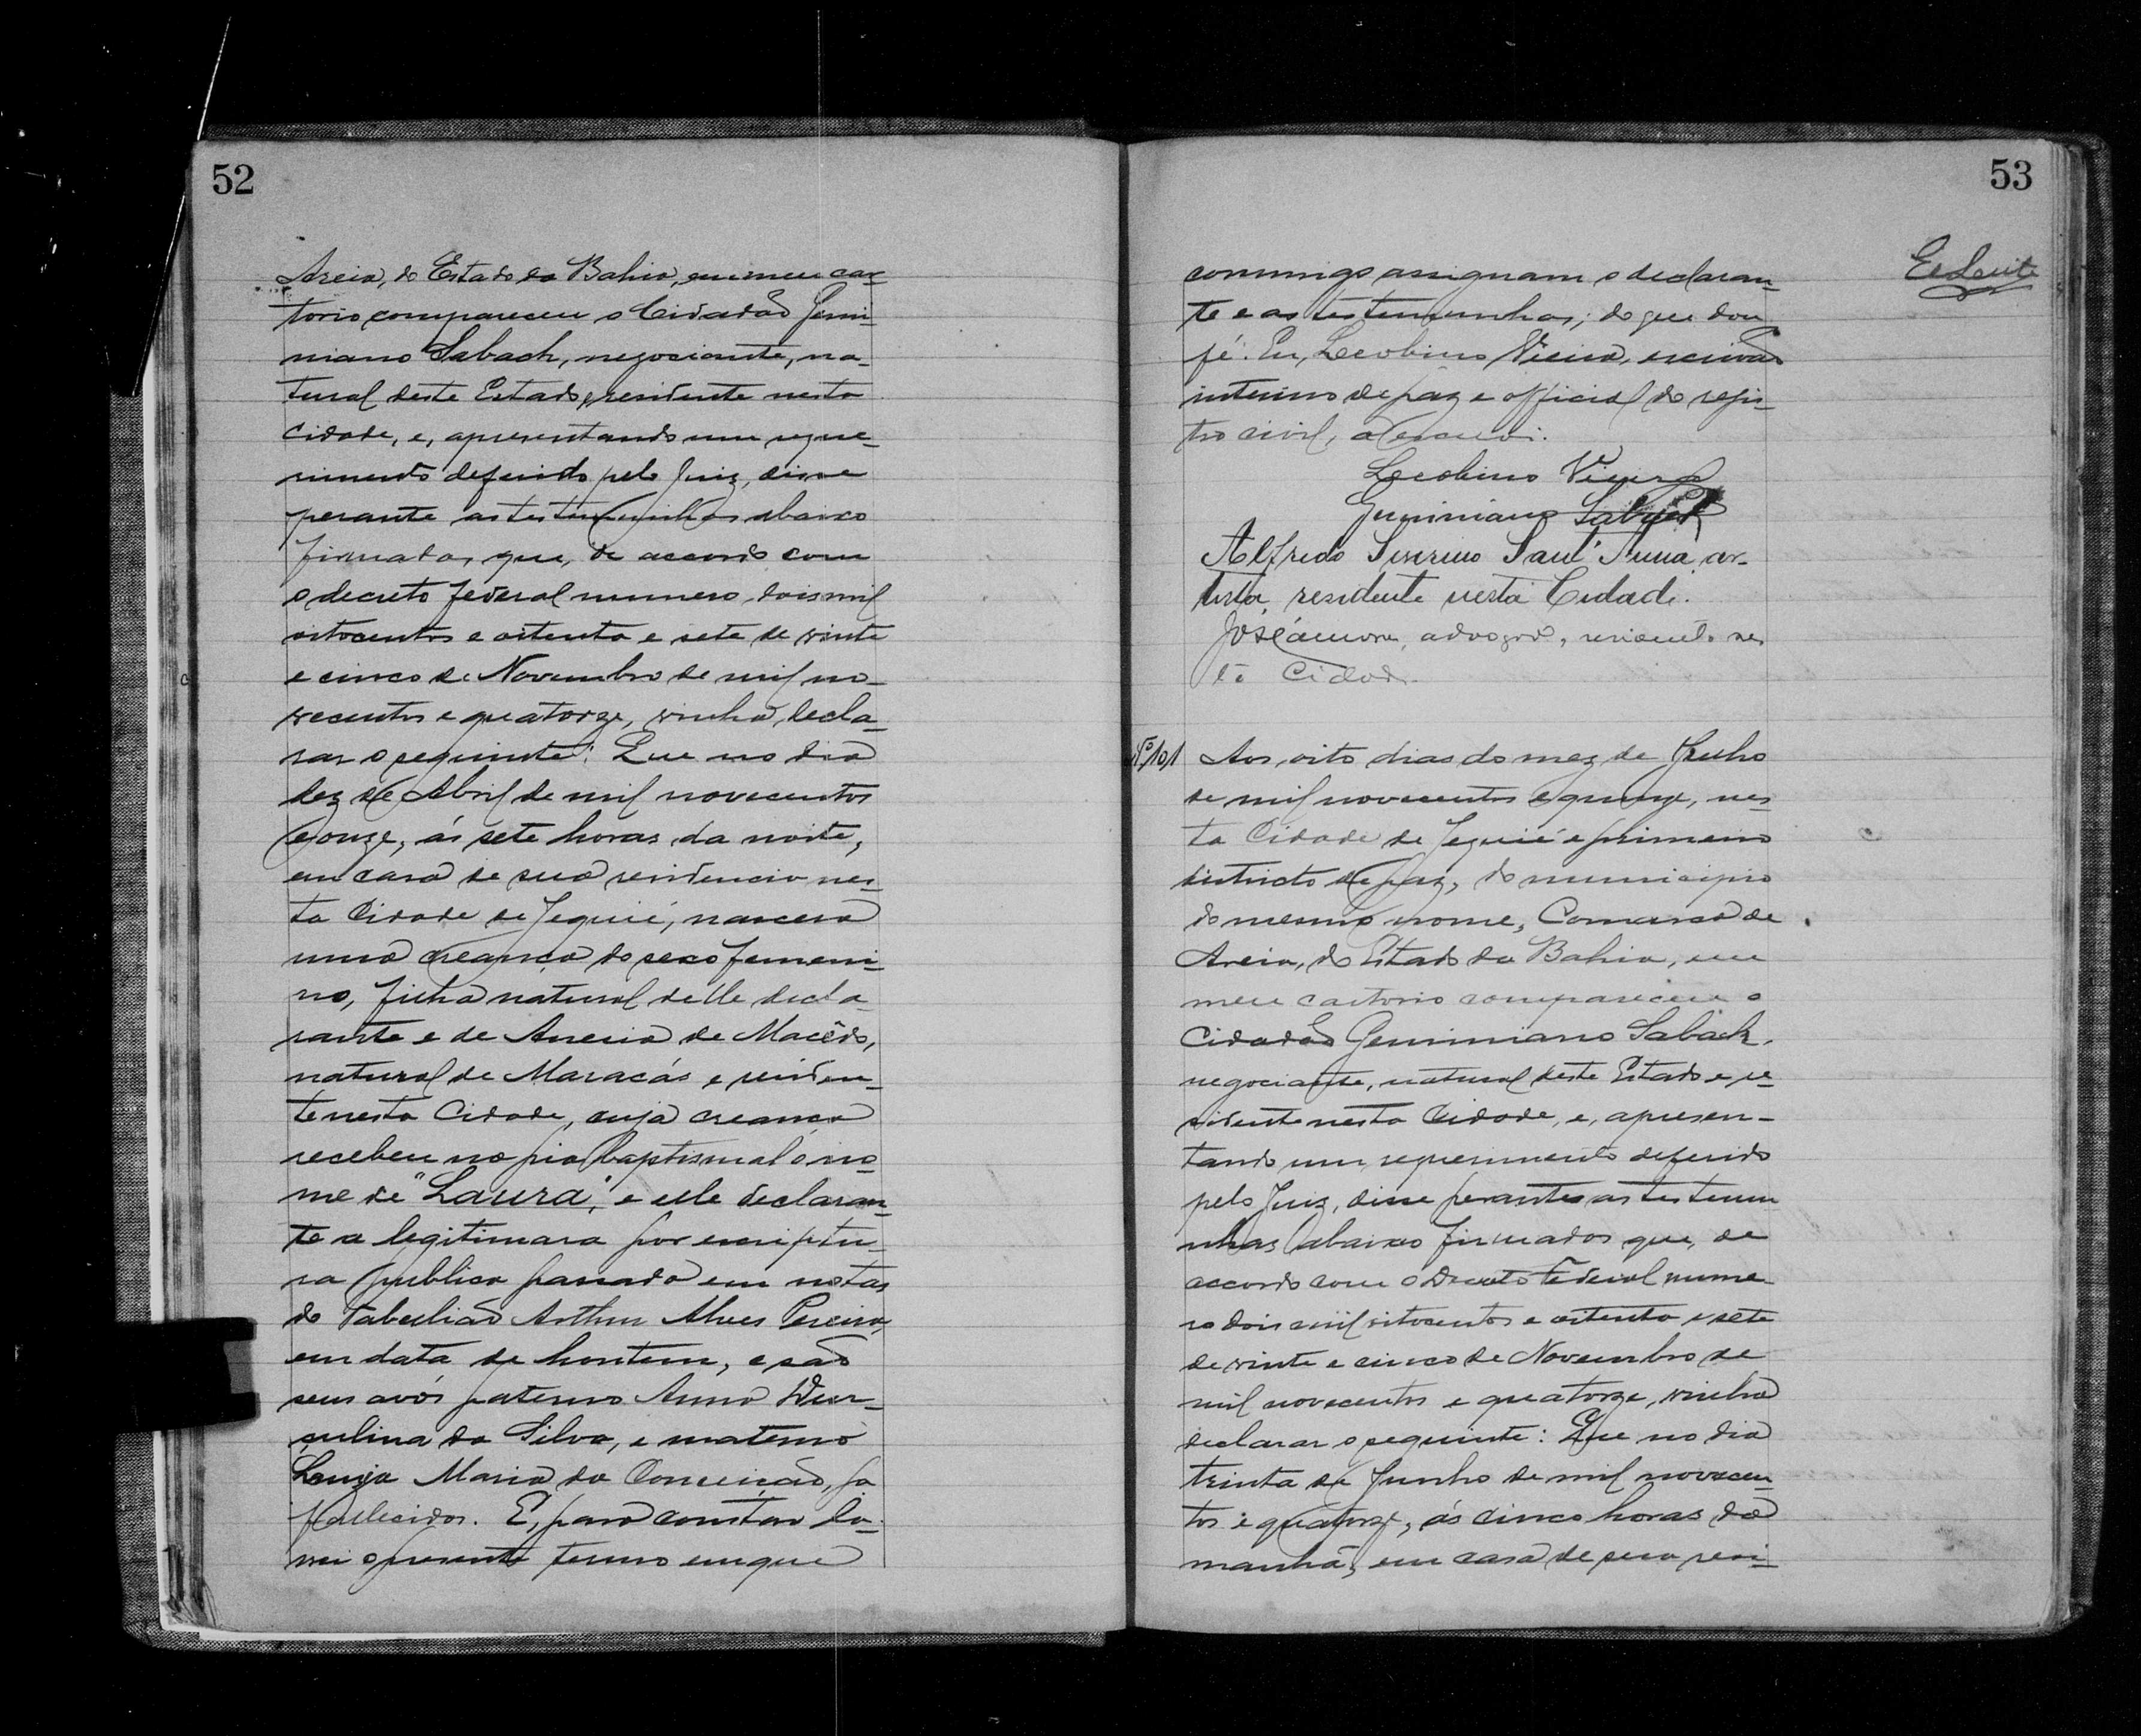 52
Areia, do Estado da Bahia, em meu car-
torio compareceu o Cidadão Gemi-
niano Saback, negociante, na-
tural deste Estado, residente nesta
Cidade, e, apresentando um reque-
rimento deferido pelo Juiz, disse
perante as testemunhas abaixo
firmadas, que, de accordo com
o decreto federal numero dois mil
oitocentos e oitenta e sete de vinte
e cinco de Novembro de mil no-
vecentos e quatorze, vinha decla-
rar o seguinte: Que no dia
dez de Abril de mil novecentos
e onze, ás sete horas da noite,
em casa de sua residencia nes-
ta Cidade de Jequié, nascera
uma creança do sexo femeni-
no, filha natural delle decla-
rante e de Anesia de Macêdo,
natural de Maracás e residen-
te nesta Cidade, cuja creança
recebeu na pia baptismal o no-
me de "Laura", e elle declaran-
te a legitimara por escriptu-
ra publica passada em notas
do Tabellião Arthur Alves Pereira,
em data de hontem, e são
seus avós paterno Anna
da Silva, e materno
Luiza Maria da Conceição, já
fallecidos. E, para constar la-
vrei o presente termo em que
53
Es Leite
commigo assignam o declaran-
te e as testemunhas; do que dou
fé. Eu, Lecobino Vieira, escrivão
interino de paz e official do regis-
tro civil, o escrevi.
Lecobino Vieira
Geminiano Saback
Alfredo Severino Sant'Anna, ar-
tista, residente nesta Cidade.
José , advogado, residente nes
ta Cidade.
Nº 101 Aos oito dias do mez de Julho
de mil novecentos e quinze, nes-
ta Cidade de Jequié e primeiro
districto de paz, do municipio
do mesmo nome, Comarca de
Areia, do Estado da Bahia, em
meu cartorio compareceu o
Cidadão Geminiano Saback,
negociante, natural deste Estado e re-
sidente nesta Cidade, e, apresen-
tando um requerimento deferido
pelo Juiz, disse perante as testemu
nhas abaixo firmadas que, de
accordo com o Decreto Federal nume-
ro dois mil oitocentos e oitenta e sete
de vinte e cinco de Novembro de
mil novecentos e quatorze, vinha
declarar o seguinte: Que no dia
trinta de Junho de mil novecen-
tos e quatorze, ás cinco horas da
manhã, em casa de sua resi-